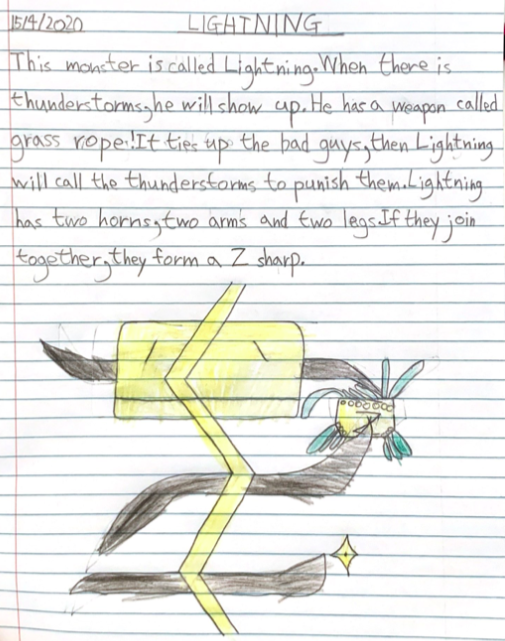 15/4/2020 LIGHTNING
This monster is called Lightning. When there is
thunderstorms, he will show up. He has a weapon called
grass rope! It ties up the bad guys, then Lightning
will call the thunderstorms to punish them. Lightning
has two horns, two arms and two legs. If they join
together, they form a Z sharp.